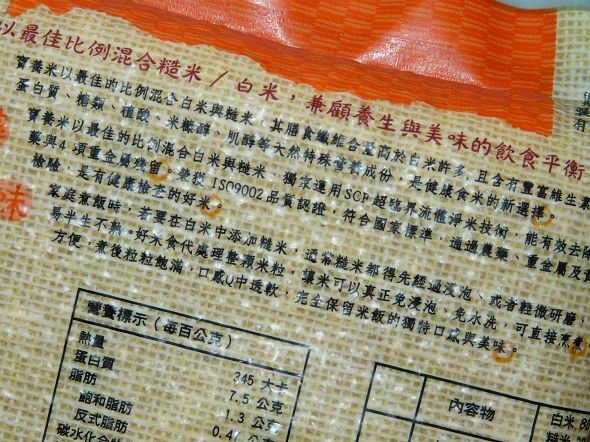 以最佳比例混合糙米/白米，兼顧養生與美味的飲食平衡
寶養米以最佳的比例混合白米與糙米，其膳食纖維含量高於白米許多，且含有豐富維生素
蛋白質、糖類、植酸、米糠醇、肌醇等天然特殊營養成份，是健康食米的新選擇。
寶養米以最佳的比例混合白米與糙米，獨家運用SCF超臨界流體淨米技術，能有效去除
藥與4項重金屬殘留。榮獲ISO9002品質認證，符合國家標準，通過農藥、重金屬及黃
檢驗，是有健康檢查的好米。
家庭煮飯時，若要在白米中添加糙米，通常糙米都得先經過浸泡、或者輕微研磨，
易半生不熟。好米食代處理整顆米粒，讓米可以真正免浸泡、免水洗，可直接烹煮
方便，煮後粒粒飽滿，口感Q中透軟，完全保留米飯的獨特口感與美味。
味
營養標示（每百公克）
熱量 345 大卡
蛋白質 7.5 公克
脂肪 1.3 公克
飽和脂肪 0.4 公克
反式脂肪
碳水化合
內容物
白米 80
糙米 20